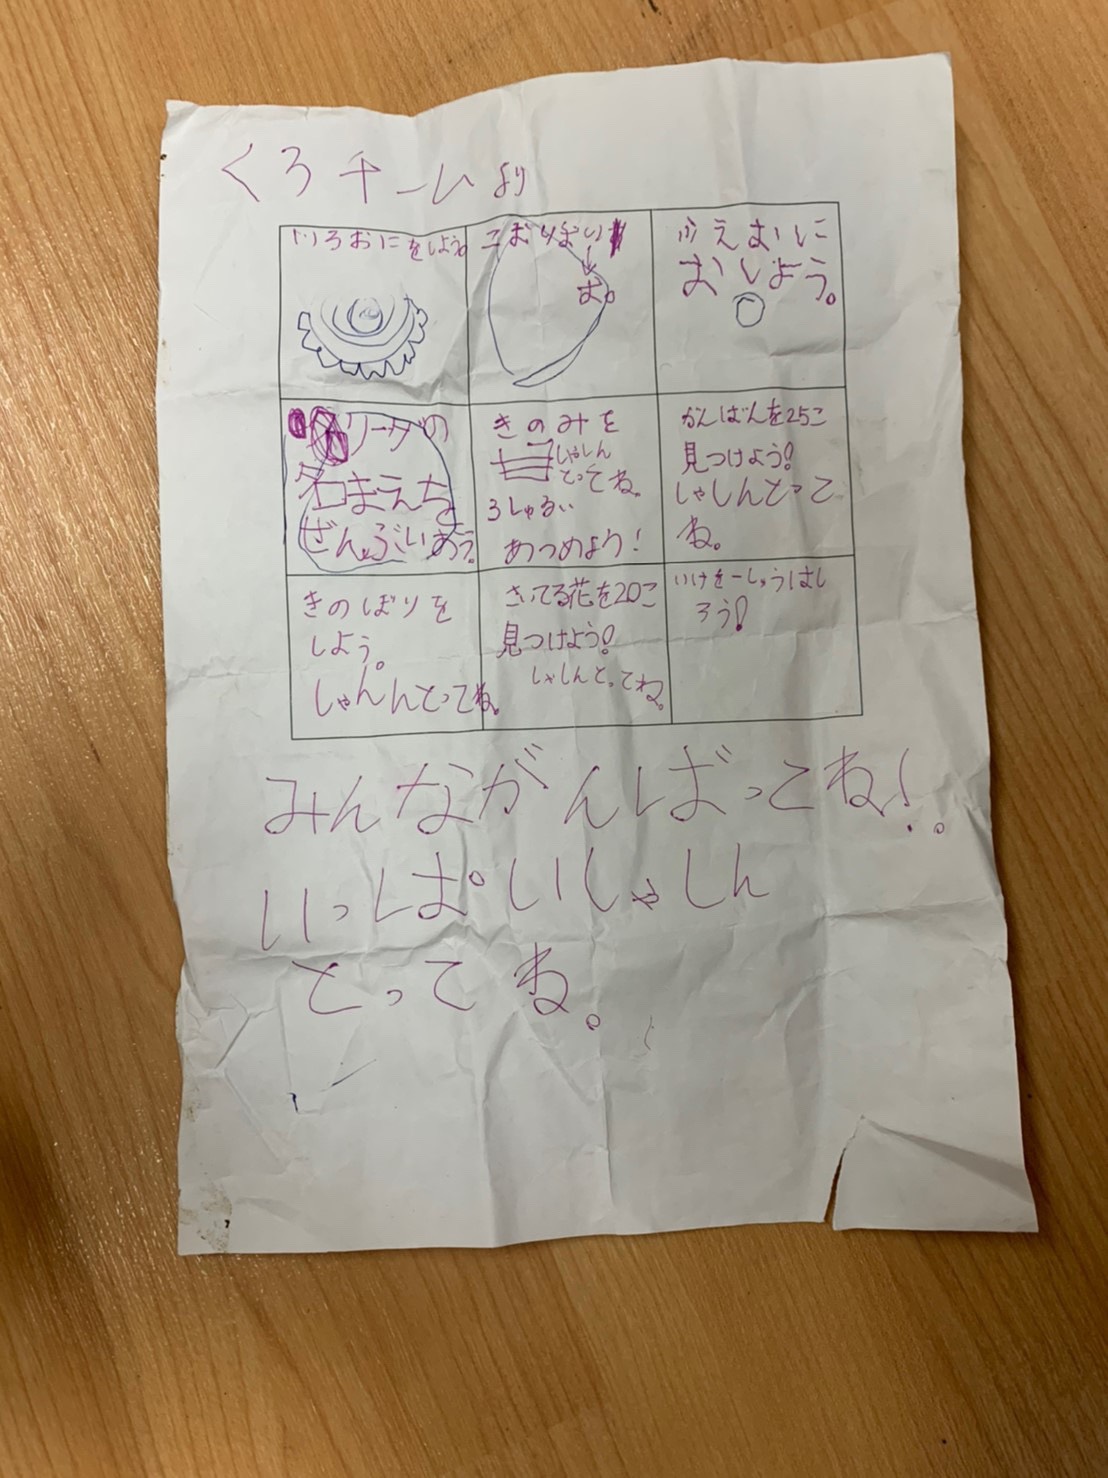 くろチームより
いろおにをしよう。
こおりおに
お。
ふえおに
おしよう。
リーダの
名まえお
ぜんぶいおう。
きのみを
しゃしん
とってね。
3しゅるい
あつめよう!
かんばんを25こ
見つけよう!
しゃしんとって
ね。
きのぼりを
しよう。
しゃんんとってね。
さいてる花を20こ
見つけよう!
しゃしんとってね。
いけを一しゅうはし
ろう!
みんながんばってね!。
いっぱいしゃしん
とってね。